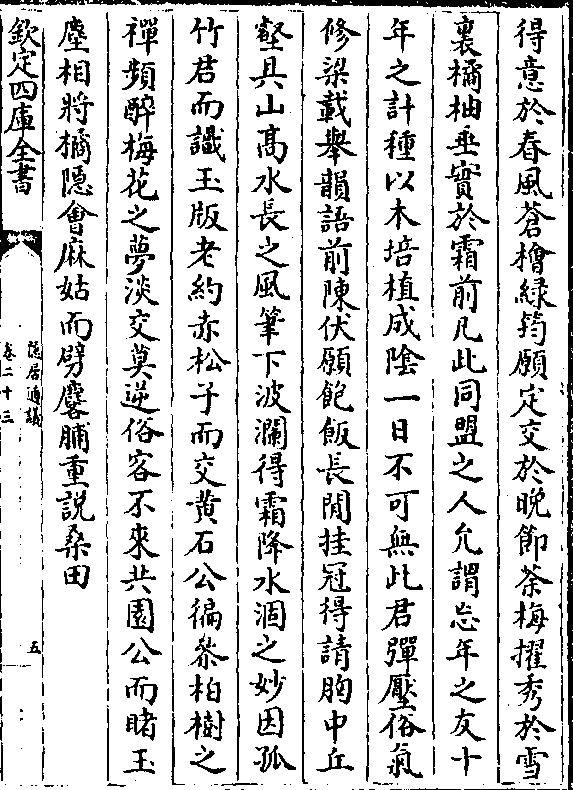 得意於春風蒼檜緑筠願定交於晩節茶梅擢秀於雪
裏橘柚垂實於霜前凡此同盟之人允謂忘年之友十
年之計種以木培植成陰一日不可無此君彈壓俗氣
修梁載舉韻語前陳伏願飽飯長閒挂冠得請胸中丘
壑具山髙水長之風筆下波瀾得霜降水涸之妙因孤
竹君而識玉版老約赤松子而交黄石公徧叅柏樹之
禪頻醉梅花之夢淡交莫逆俗客不來共園公而睹玉
塵相將橘隠會麻姑而劈麐脯重説桑田
欽定四庫全書
隠居通議
卷二十三
五